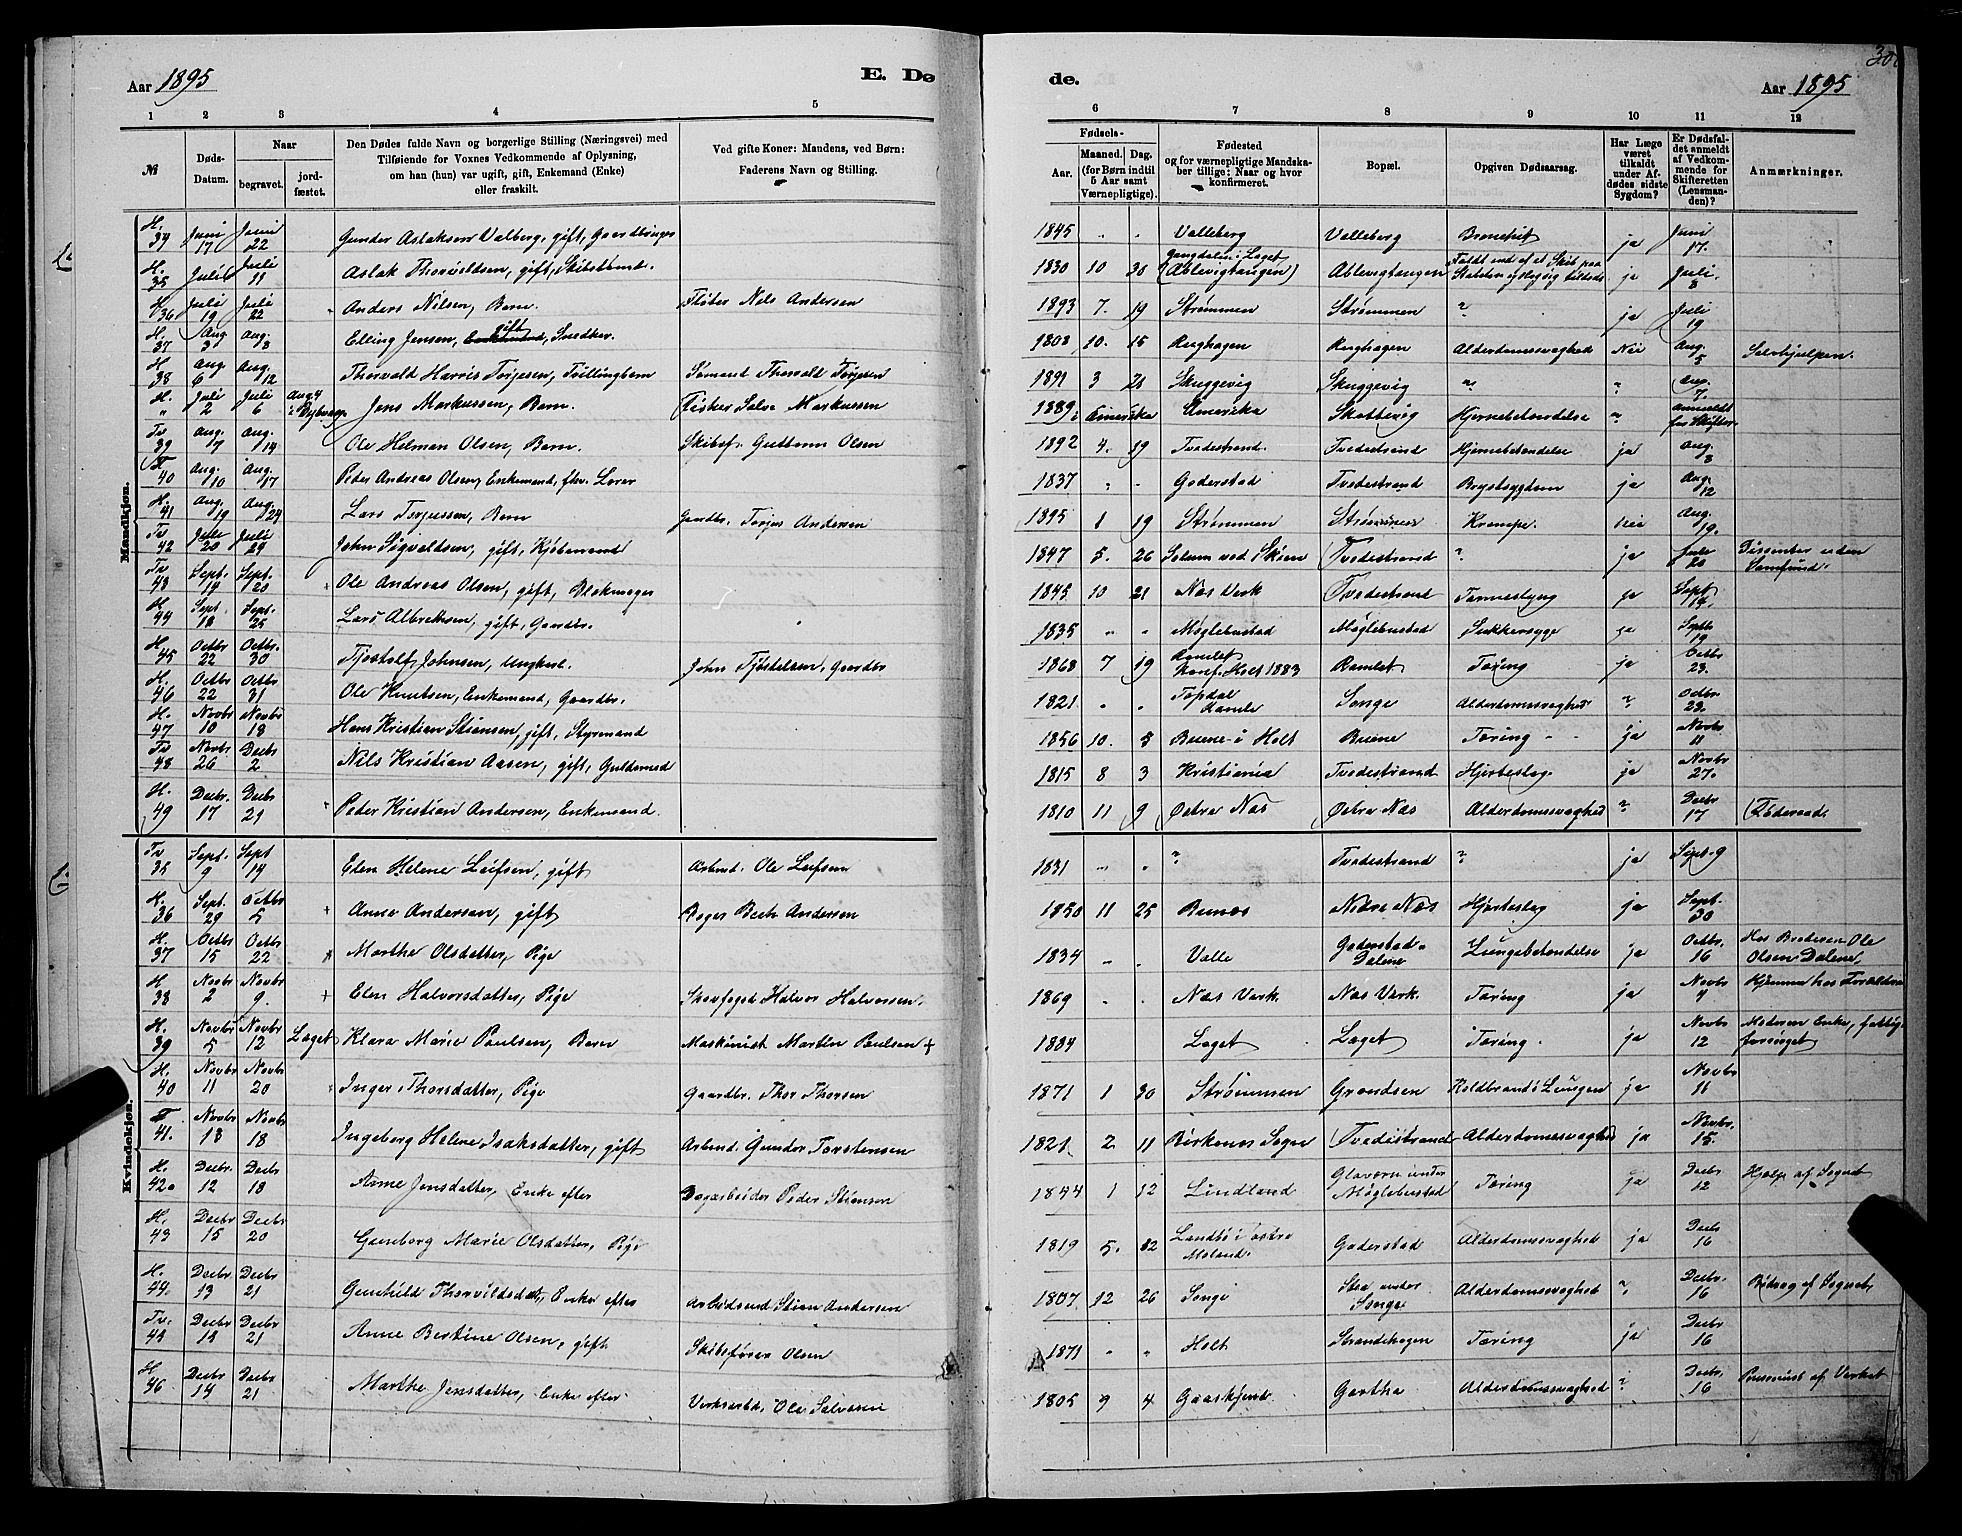 Aar 1895
E. Dø
1 2 3 4 5
№
Døds-Datum.
Naar
begravet.
jord-fæstet.
Den Dødes fulde Navn og borgerlige Stilling (Næringsvei) med
Tilføiende for Voxnes Vedkommende af Oplysning,
om han (hun) var ugift, gift, Enkemand (Enke)
eller fraskilt.
Ved gifte Koner: Mandens, ved Børn:
Faderens Navn og Stilling.
Mandkjøn.
H. 34 Juni 17 Juni 22 Gunder Aslaksen Valberg, gift, Gaardbruger
H. 35 Juli Juli 11 Aslak Thorvildsen, gift, Skibstømd.
H. 36 Juli 19 Juli 22 Anders Nilsen, Barn. Nils Andersen
H. 37 Aug 3 Aug 8 Elling Jensen, gift, Snedker.
H. 38 Aug. 6 Aug. 12 Thorvald Harris Torjesen, Tvillingbarn Sømand Thorvald Torjesen
H. " Juli 2 Juli 6 Aug. 4 Jens Markussen, Barn. Fisker Salve Markussen
Tv 39 Aug. 7 Aug. 14 Ole Helman Olsen, Barn. Skibsf. Guttorm Olsen
T 40 Aug. 10 Aug. 17 Peder Andreas Olsen, Enkemand, fhv. Lærer
H. 41 Aug. 19 Aug. 24 Lars Torjussen, Barn Gardbr. Torjus Andersen
Tv 42 Juli 20 Juli 24 John Sigvaldsen, gift, Kjøbmand
Tv 43 Sept. 14 Sept. 20 Ole Andreas Olsen, gift, Blokmager
H 44 Sept. 18 Sept. 25 Lars Albrektsen, gift, Gaardbr.
H 45 Octbr 22 Octbr. 30 Tjostolf Johnsen, Ungkarl. John Tjostelsen, Gaardbr
H. 46 Octbr 22 Octbr 31 Ole Knutsen, Enkemand, Gaardbr.
H. 47 Novbr 10 Novbr 18 Hans Kristian Stiansen, gift, Styrmand
Tv 48 Novbr. 26 Decbr 2 Nils Kristian Aasen, gift, Guldsmed
H. 49 Decbr. 17 Decbr 21 Peder Kristian Andersen, Enkemand.
Kvindekjøn.
Tv 35 Sept. 9 Sept 14 Elen Helene Leifsen, gift Arbmd. Ole Leifsen
H. 36 Sept. 29 Octbr 5 Anne Andersen, gift Roger Bech Andersen
H. 37 Octbr 15 Octbr 22 Marthe Olsdatter, Pige
H. 38 Novbr 2 Novbr 9. Elen Halvorsdatter, Pige Skovfoged Halvor Halvorsen.
H. 39 Novbr 5 Novbr 12 Laget Klara Marie Paulsen, Barn Maskinist Martin Paulsen +
H. 40 Novbr 11 Novbr 20 Inger Thorsdatter, Pige Gaardbr. Thor Thorsen
T 41. Novbr 13 Novbr 18 Ingeborg Helene Isaksdatter, gift Arbmd. Gunder Torstensen
H. 42 Decbr. 12 Decbr 18 Anne Jensdatter, Enke efter Dagarbeider Peder Stiansen
H. 43 Decbr 15 Decbr 20 Gunborg Marie Olsdatter, Pige
H. 44. Decbr 13 Decbr 21 Gunhild Thorvildsdat, Enke efter Arbeidsmd Stian Andersen
Tv. 45 Decbr 13 Decbr 21 Anne Bertine Olsen, gift Skibsfører Olsen
H. 46 Decbr 14 Decbr 21 Marthe Jensdatter, Enke efter Verksarbd. Ole Salvesen
de.
Aar 1895
6 7 8 9 10 11 12
Fødsels-
Aar.
Maaned. Dag.
(for Børn indtil
5 Aar samt
Værnepligtige).
Fødested
og for værnepligtige Mandska-
ber tillige: Naar og hvor
konfirmeret.
Bopæl.
Opgiven Dødsaarsag.
Har Læge
været
tilkaldt
under Af-
dødes sidste
Sygdom?
Er Dødsfal-
det anmeldt
af Vedkom-
mende for
Skifteretten
(Lensman-
den)?
Anmærkninger.
1845 " " Valleberg Valleberg ja Juni 17.
1830 10 20 Laget (Ablevigtangen) Ablevigtangen Faldt ned af et Skib paa ja Juli 8
1893 7. 19 Strømmen Strømmen ? ja Juli 19
1808 10. 15 Rughagen Rughagen Alderdomssvaghed Nei Aug. 5 Selvhjulpen.
1891 3 21 Skuggevig Skuggevig " " Aug. 7.
1889 Amerika Amerika Skottevig Hjernebetændelse " anmeldt
1892 4. 19 Tvedestrand. Tvedestrand Hjernebetændelse ja Aug. 8
1837 " - Goderstad Tvedestrand Brystsygdom ja Aug. 12
1895 1 19 Strømmen Strømmen Krampe. Nei Aug. 19.
1847 5. 26 Solum ved Skien Tvedestrand ? ja Juli 20 Dissenter uden Samfund.
1845 10 21 Næs Verk Tvedestrand ja Sept 14.
1835 " " Møglebustad Møglebustad Sukkersyge ja Septb 19
1868 7 19 Ramlet Konf. Holt 1883 Ramlet Tæring ja Octbr 23.
1821 " " Songe Alderdomssvaghed " Octbr. 23.
1856 10. 3 Buene i Holt Buene Tæring ja Novbr 11
1815 8 3 Kristiania Tvedestrand Hjerteslag. ja Novbr 27.
1810 11 9 Østre Næs Østre Næs Alderdomssvaghed " Decbr 17 Føderaad.
1831 " " ? Tvedestrand ? ja Sept. 9
1850 11 25 Nedre Næs Hjerteslag ja Sept. 30
1834 " " Valle Goderstad Dalene Lungebetændelse ja Octbr. 16 Hos Broderen Ole Olsen Dalene,
1869 " " Næs Verk Næs Verk. Tæring ja Novbr 4 Hjemme hos Forældrene
1884 Laget Laget Tæring ja Novbr 12 Moderen Enke, fattigforsørget
1871 1 30 Strømmen Grændsen Koldbrand i Lungen ja Novbr 11
1821. 2 11 Birkenes Sogne Tvedestrand Alderdomssvaghed ja Novbr. 15.
1844 1 12 Lindland under Møglebustad Tæring ja Decbr 12 Hjælp af Sognet
1819 5. 12 Landtø i østre Moland. Goderstad Alderdomssvaghed ja Decbr 16
1807 12 26 Songe under Songe Alderdomssvaghed " Decbr. 16 Bidrag af Sognet
1871 " " Holt Strandehagen Tæring ja Decbr 16
1805 9 4 Gaaskjend Gjertha Alderdomssvaghed " Decbr. 16 Pensionist af Verket